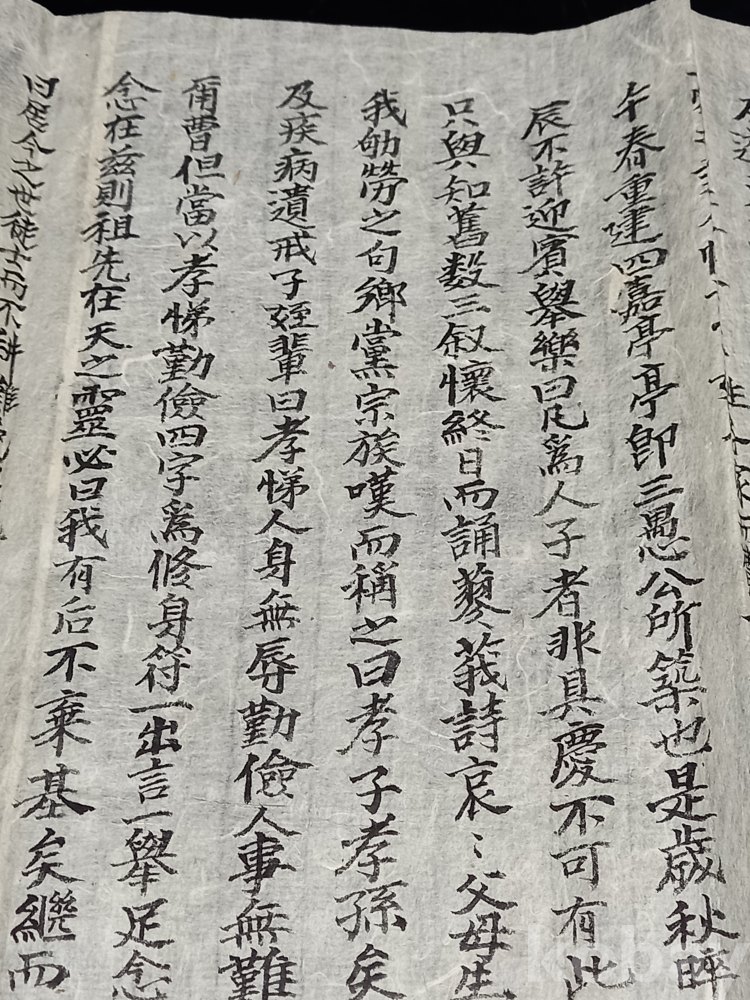 午春重建四嘉亭亭卽三愚公所築也是歲秋晬
辰不許迎賓舉樂曰凡爲人子者非具慶不可有此
只與知舊数三叙懷終日而誦蓼莪詩哀〻父母生
我劬勞之句鄕黨宗族嘆而稱之曰孝子孝孫矣
及疾病遺戒子姪輩曰孝悌人身無辱勤儉人事無難
爾曹但當以孝悌勤儉四字爲修身符一出言一舉足念
念在玆則祖先在天之靈必曰我有后不棄基矣繼而
曰居今之世徒士而不耕難